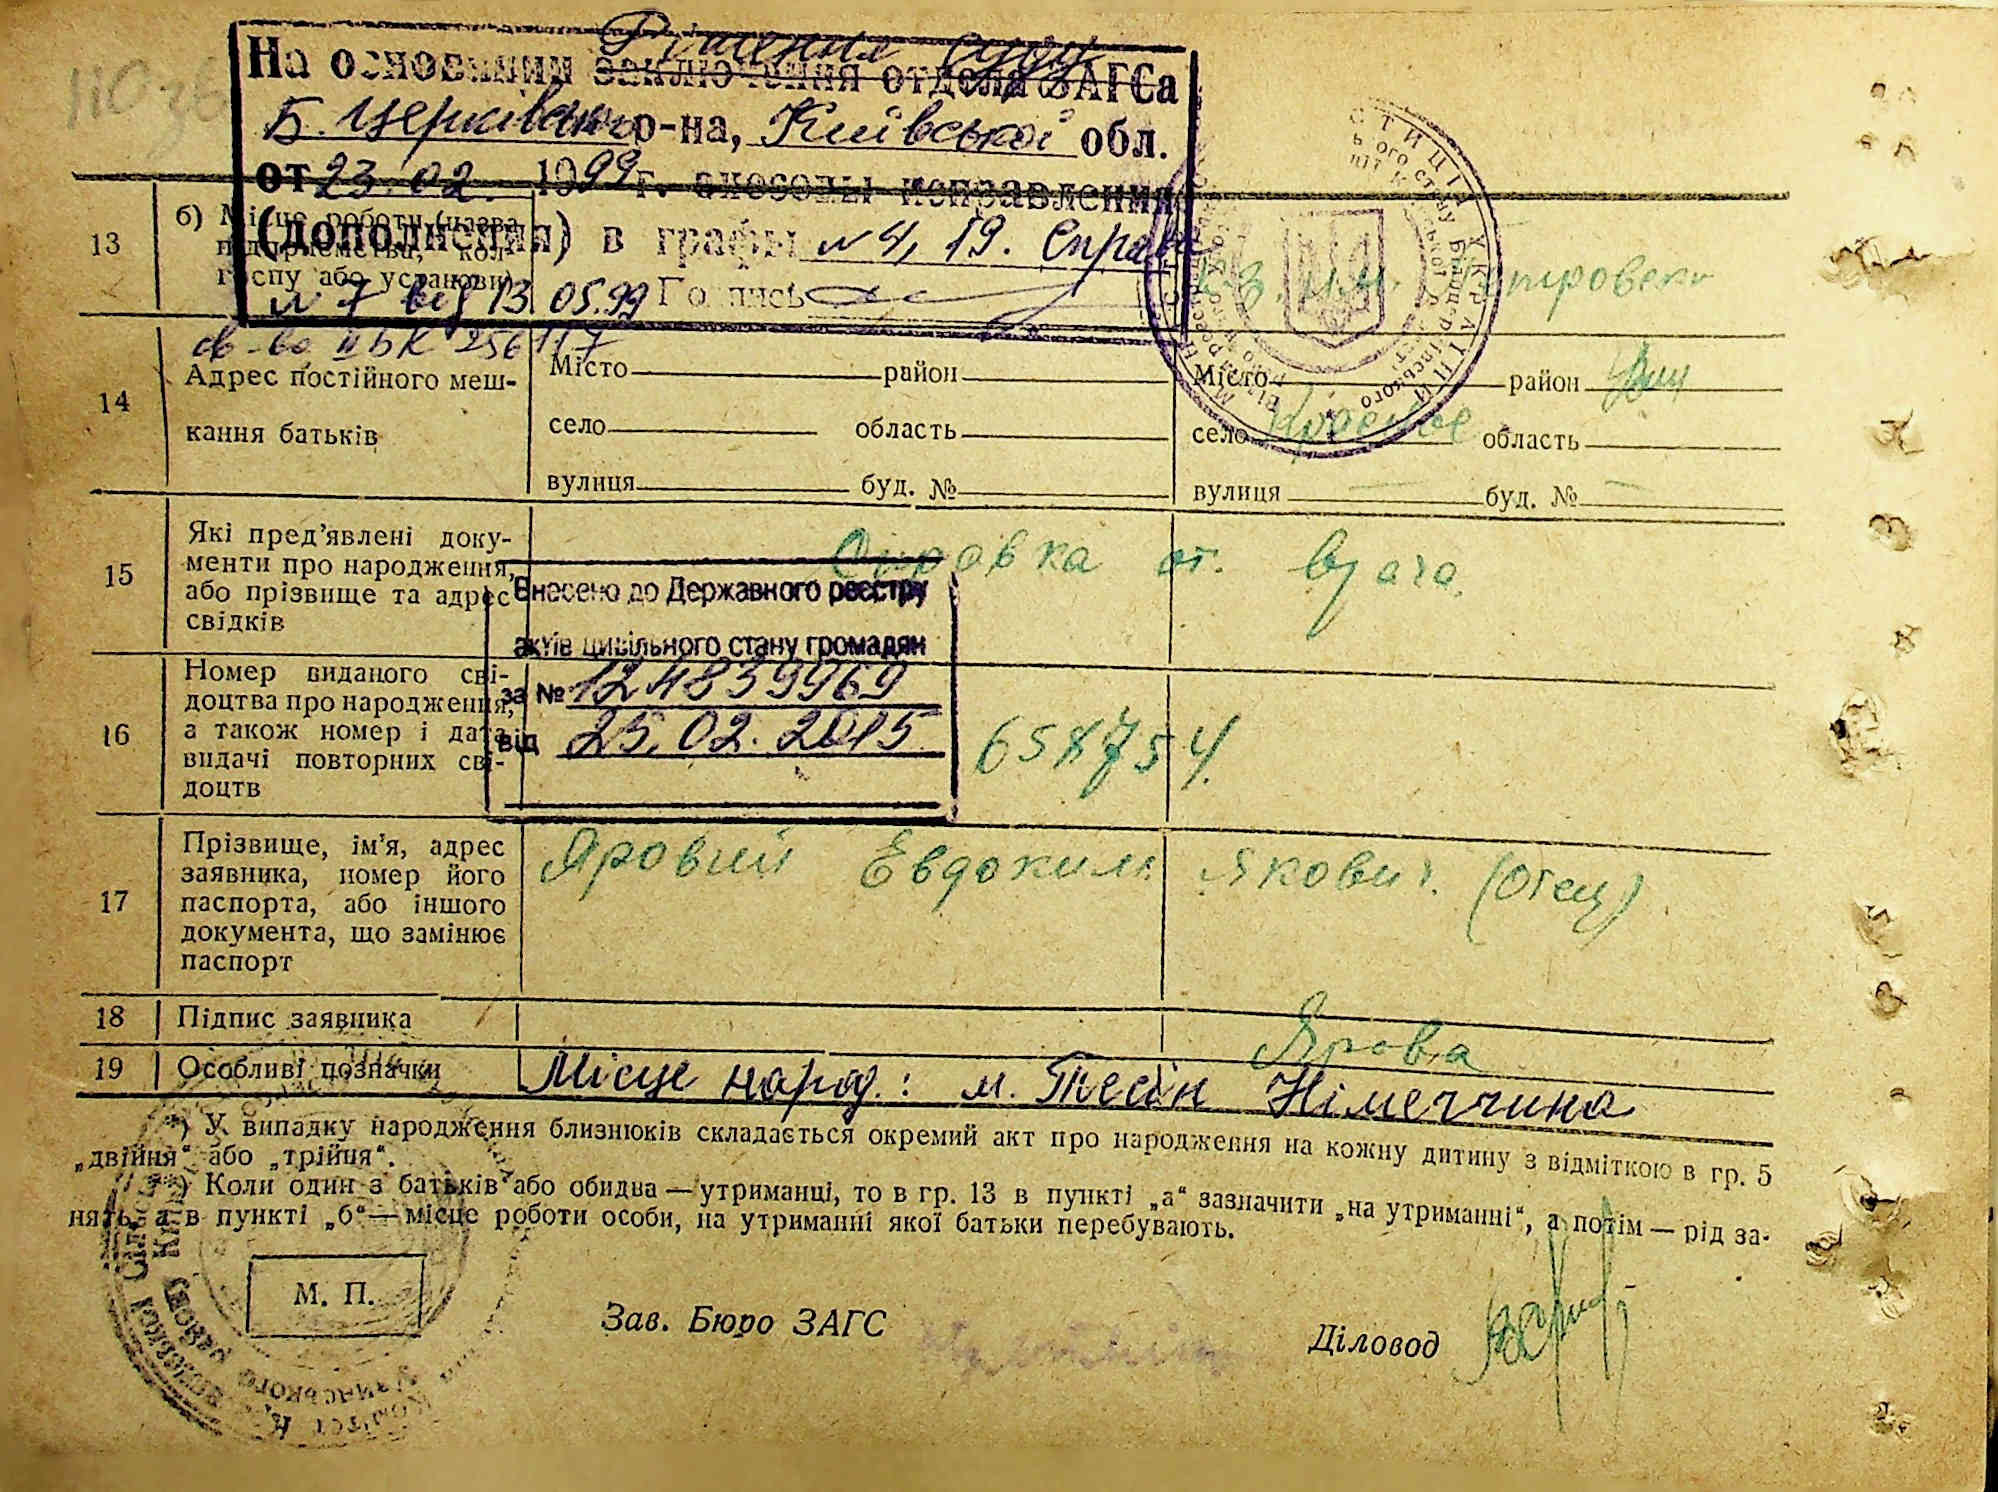 Рішення суду
На основании заключения отдела ЗАГСа
Б. Церківського р-на, Київської обл.
от 23.02. 1999 г. внесены исправления
(дополнения) в графы №4, 19. Справа
№ 7 від 13 05.99 Подпись
св-во II БК 256117
13
б) Місце роботи (назва
підприємства, кол-
госпу або установи)
14
Адрес постійного меш-
кання батьків
Місто район
село область
вулиця буд. №
Місто район Узин
село область
вулиця буд. №
15
Які пред'явлені доку-
менти про народження,
або прізвище та адрес
свідків
Справка от. врача.
Внесено до Державного реєстру
актів цивільного стану громадян
за № 124839969
від 25.02.2015
16
Номер виданого сві-
доцтва про народження,
а також номер і дата
видачі повторних сві-
доцтв
17
Прізвище, ім'я, адрес
заявника, номер його
паспорта, або іншого
документа, що замінює
паспорт
Яровий Евдоким Якович. (Отец)
18 Підпис заявника
Ярова
19 Особливі позначки
Місце народ.: м. Тесін Німеччина
*) У випадку народження близнюків складається окремий акт про народження на кожну дитину з відміткою в гр. 5
„двійня“ або „трійня“.
**) Коли один з батьків або обидва — утриманці, то в гр. 13 в пункті „а“ зазначити „на утриманні“, а потім — рід за-
нять, а в пункті „б“ — місце роботи особи, на утриманні якої батьки перебувають.
М. П.
Зав. Бюро ЗАГС
Діловод